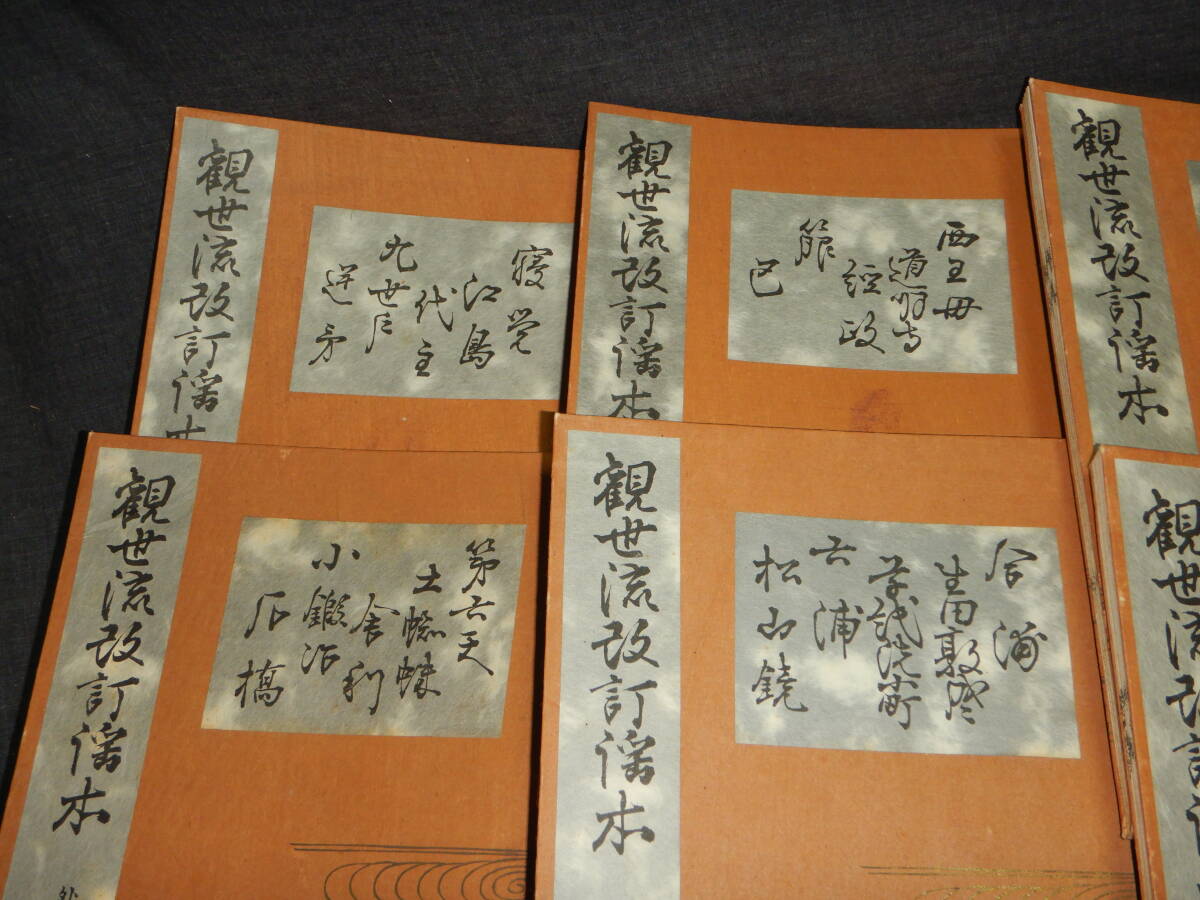 観世流改訂謡本
寝覚
江島
代主
九世戸
逆矛
観世流改訂謡本
西王母
道明寺
経政
箙
巴
観世流改訂謡本
観世流改訂謡本
第六天
土蜘蛛
舎利
小鍛冶
石橋
観世流改訂謡本
合浦
生田敦盛
草紙洗小町
六浦
松山鏡
観世流改訂